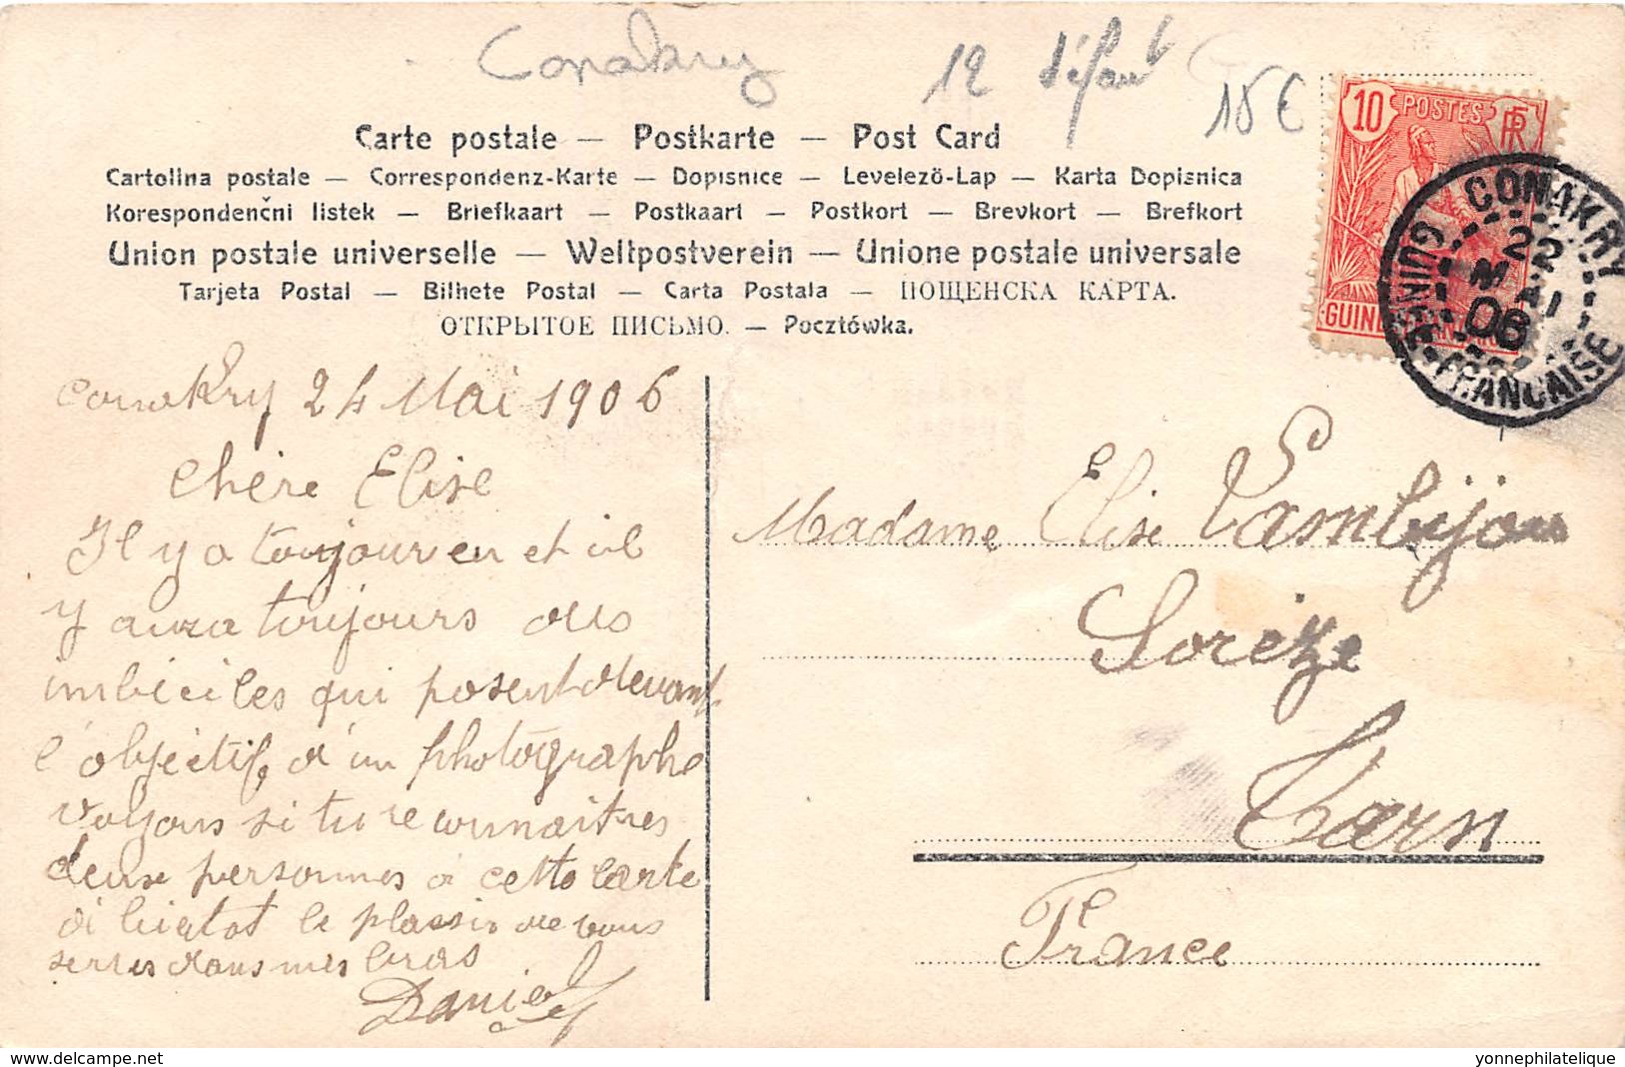 Conakry
12 défaut
15€
Carte postale — Postkarte — Post Card
Cartolina postale — Correspondenz-Karte — Dopisnice — Levelezö-Lap — Karta Dopisnica
Korespondenčni listek — Briefkaart — Postkaart — Postkort — Brevkort — Brefkort
Union postale universelle — Weltpostverein — Unione postale universale
Tarjeta Postal — Bilhete Postal — Carta Postala — ПОЩЕНСКА КАРТА.
ОТКРЫТОЕ ПИСЬМО. — Pocztówka.
10 POSTES RF
GUINÉE
CONAKRY
22
MAI
06
GUINÉE FRANÇAISE
Conakry 24 Mai 1906
Chère Elise
Il y a toujour eu et il
y aura toujours des
imbéciles qui posent devant
l'objectif d'un photographe
voyons si tu reconnaitres
deux personnes à cette carte
à bientot le plassir de vous
serres dans mes bras
Daniel
Madame Elise Cambijou
Sorèze
Tarn
France
www.delcampe.net
yonnephilatelique